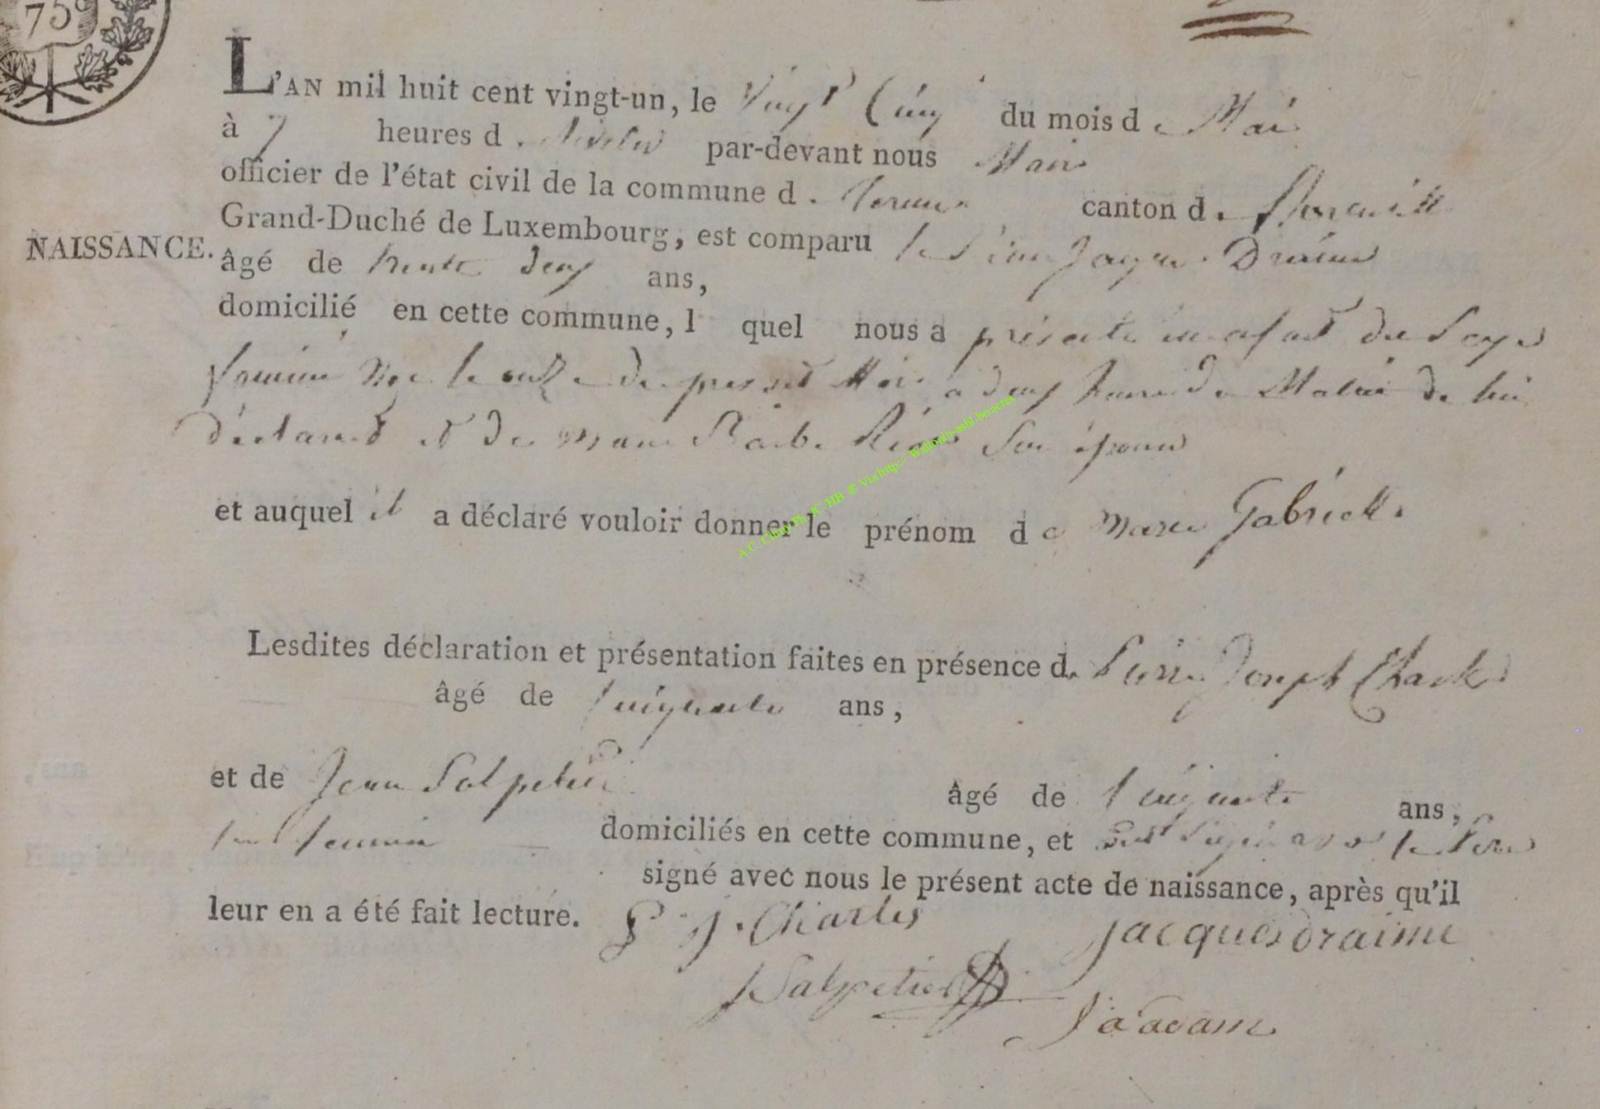 75c
L'AN mil huit cent vingt-un, le Vingt Cinq du mois de Mai
à 7 heures d par-devant nous Maire
officier de l'état civil de la commune d canton de florenville
Grand-Duché de Luxembourg, est comparu le Sieur Jacques Draime
NAISSANCE.
âgé de trente deux ans,
domicilié en cette commune, l quel nous a présenté un enfant du Sexe
feminin Née le onze du present Mois a deux heures du Matin de lui
déclarant et de Marie Barbe son épouse
et auquel il a déclaré vouloir donner le prénom de Marie Gabrielle
Lesdites déclaration et présentation faites en présence de Pierre Joseph Charles
âgé de Cinquante ans,
et de Jean Salpetier âgé de Cinquante ans,
tous temoins domiciliés en cette commune, et ont le Pere
signé avec nous le présent acte de naissance, après qu'il
leur en a été fait lecture. P. J. Charles Jacques Draime
J Salpetier